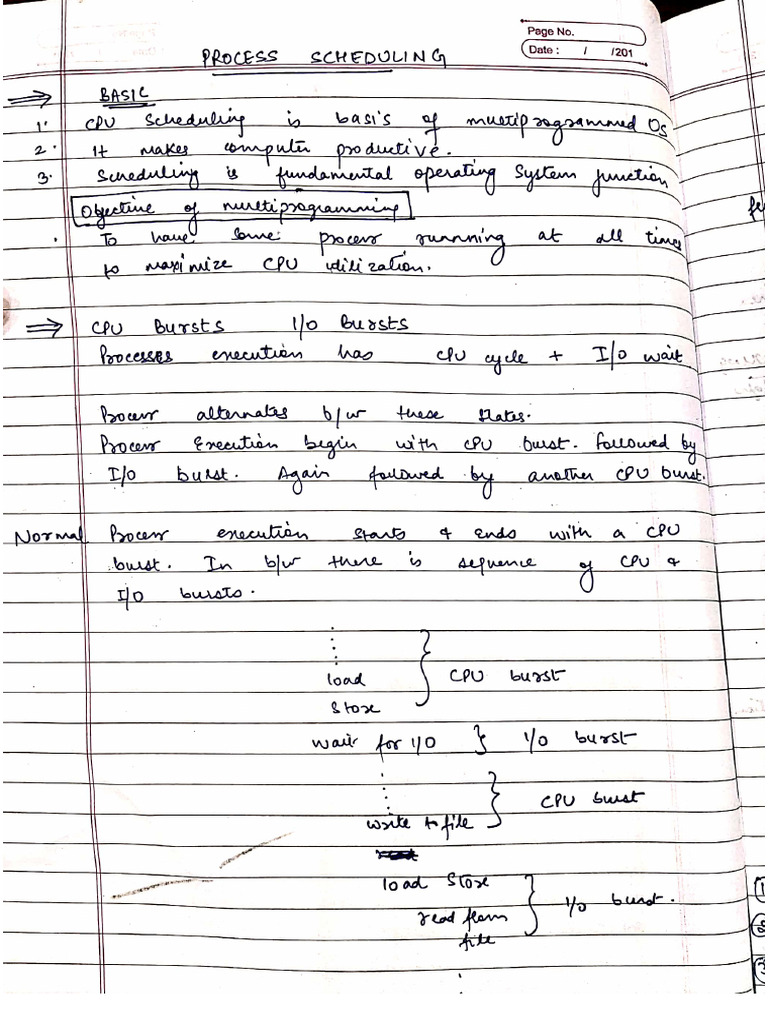 Page No.
Date : / /201
PROCESS SCHEDULING
⇒ BASIC
1. CPU Scheduling is basis of multiprogrammed OS
2. It makes computer productive.
3. Scheduling is fundamental operating system function
Objective of multiprogramming
. To have some process runnning at all times
to maximize CPU utilization.
⇒ CPU BURSTS I/O BURSTS
Processes execution has CPU cycle + I/O wait
Process alternates b/w these states.
Process Execution begin with CPU burst. followed by
I/O burst. Again followed by another CPU burst.
Normal Process execution starts & ends with a CPU
burst. In b/w there is sequence of CPU &
I/O bursts.
load } CPU burst
store
wait for I/O } I/O burst
write to file } CPU burst
load store
read from } I/O burst.
file